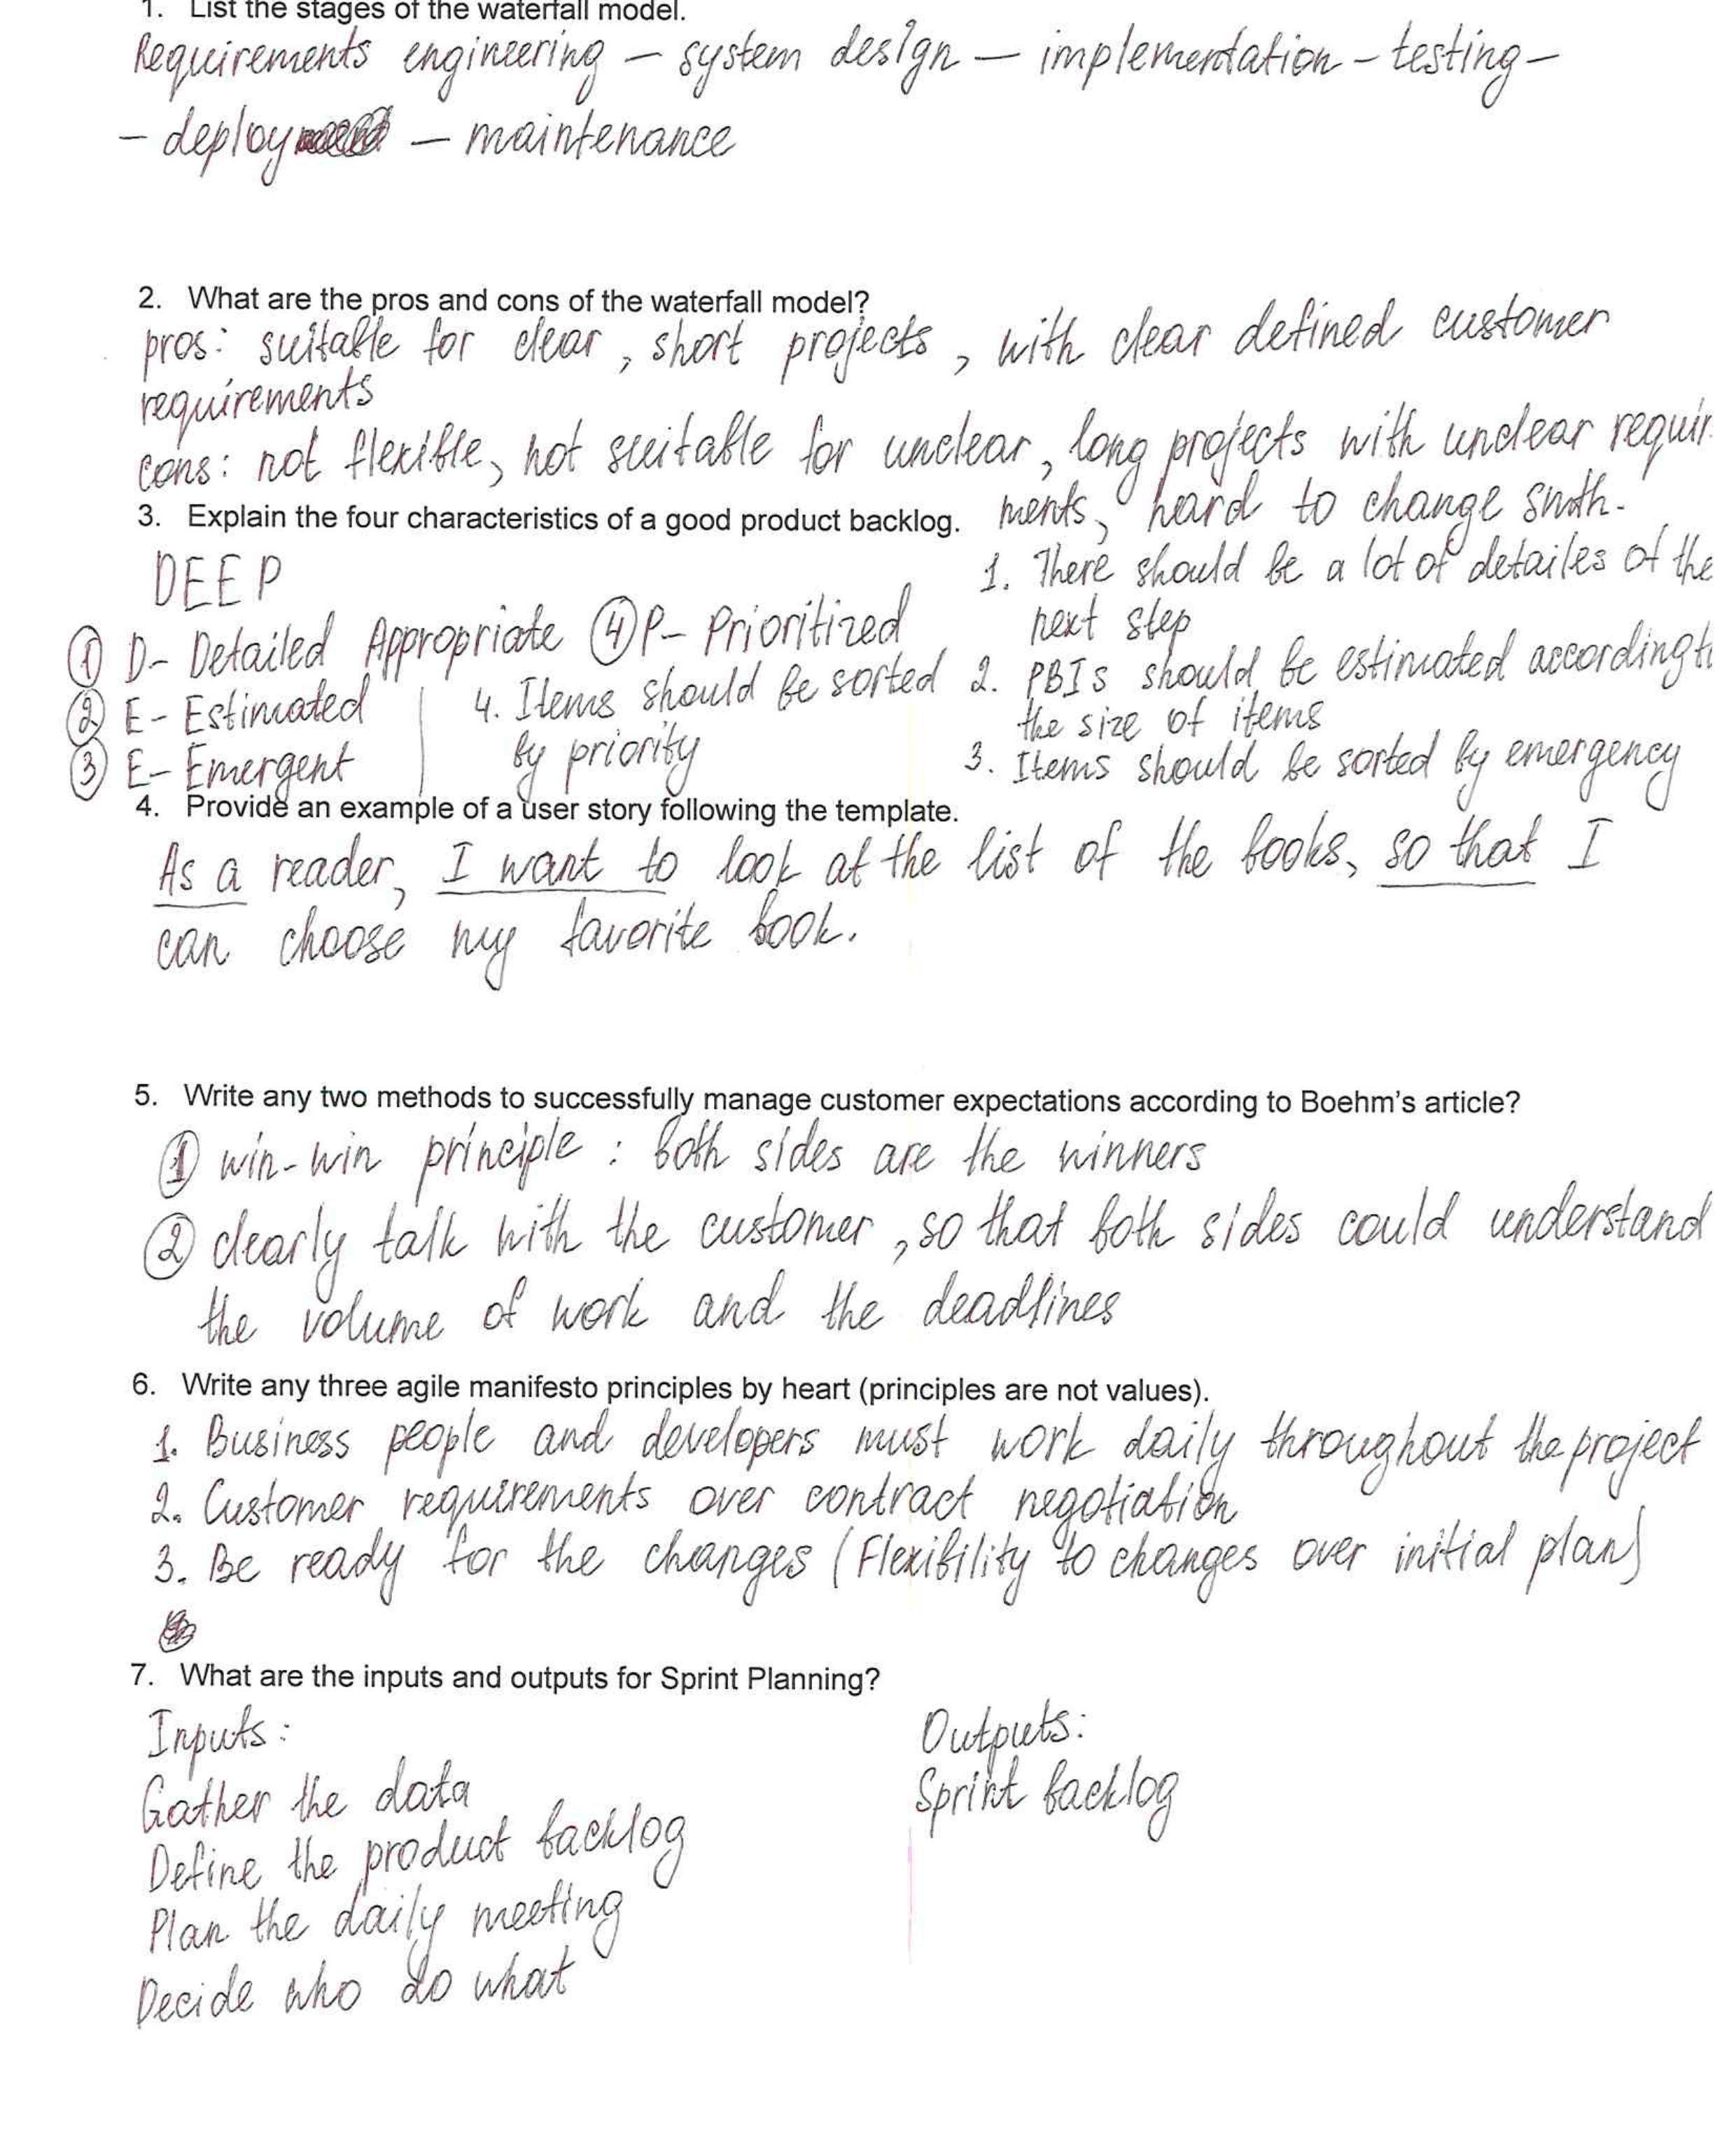 1. List the stages of the waterfall model.
Requirements engineering – system design – implementation – testing –
– deploy – maintenance
2. What are the pros and cons of the waterfall model?
pros: suitable for clear, short projects, with clear defined customer
requirements
cons: not flexible, not suitable for unclear, long projects with unclear requir
ments, hard to change smth.
3. Explain the four characteristics of a good product backlog.
DEEP
① D- Detailed Appropriate ④ P- Prioritized
② E- Estimated
③ E- Emergent
4. Items should be sorted
by priority
1. There should be a lot of detailes of the
next step
2. PBIs should be estimated according t
the size of items
3. Items should be sorted by emergency
4. Provide an example of a user story following the template.
As a reader, I want to look at the list of the books, so that I
can choose my favorite book.
5. Write any two methods to successfully manage customer expectations according to Boehm's article?
① win-win principle: both sides are the winners
② clearly talk with the customer, so that both sides could understand
the volume of work and the deadlines
6. Write any three agile manifesto principles by heart (principles are not values).
1. Business people and developers must work daily throughout the project
2. Customer requirements over contract negotiation
3. Be ready for the changes (Flexibility to changes over initial plan)
7. What are the inputs and outputs for Sprint Planning?
Inputs:
Gather the data
Define the product backlog
Plan the daily meeting
Decide who do what
Outputs:
Sprint backlog